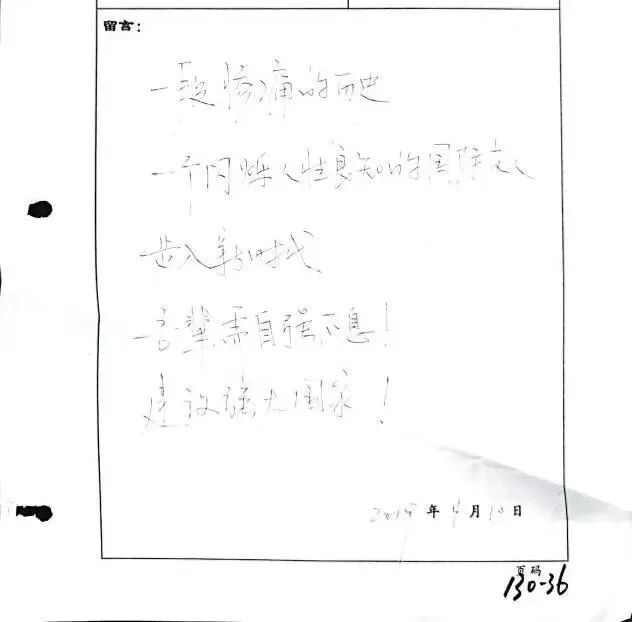 留言:
一段惨痛的历史
一个闪烁人性良知的国际友人
步入新时代、
吾辈需自强不息!
建设强大国家!
2019年4月10日
页码
130-36